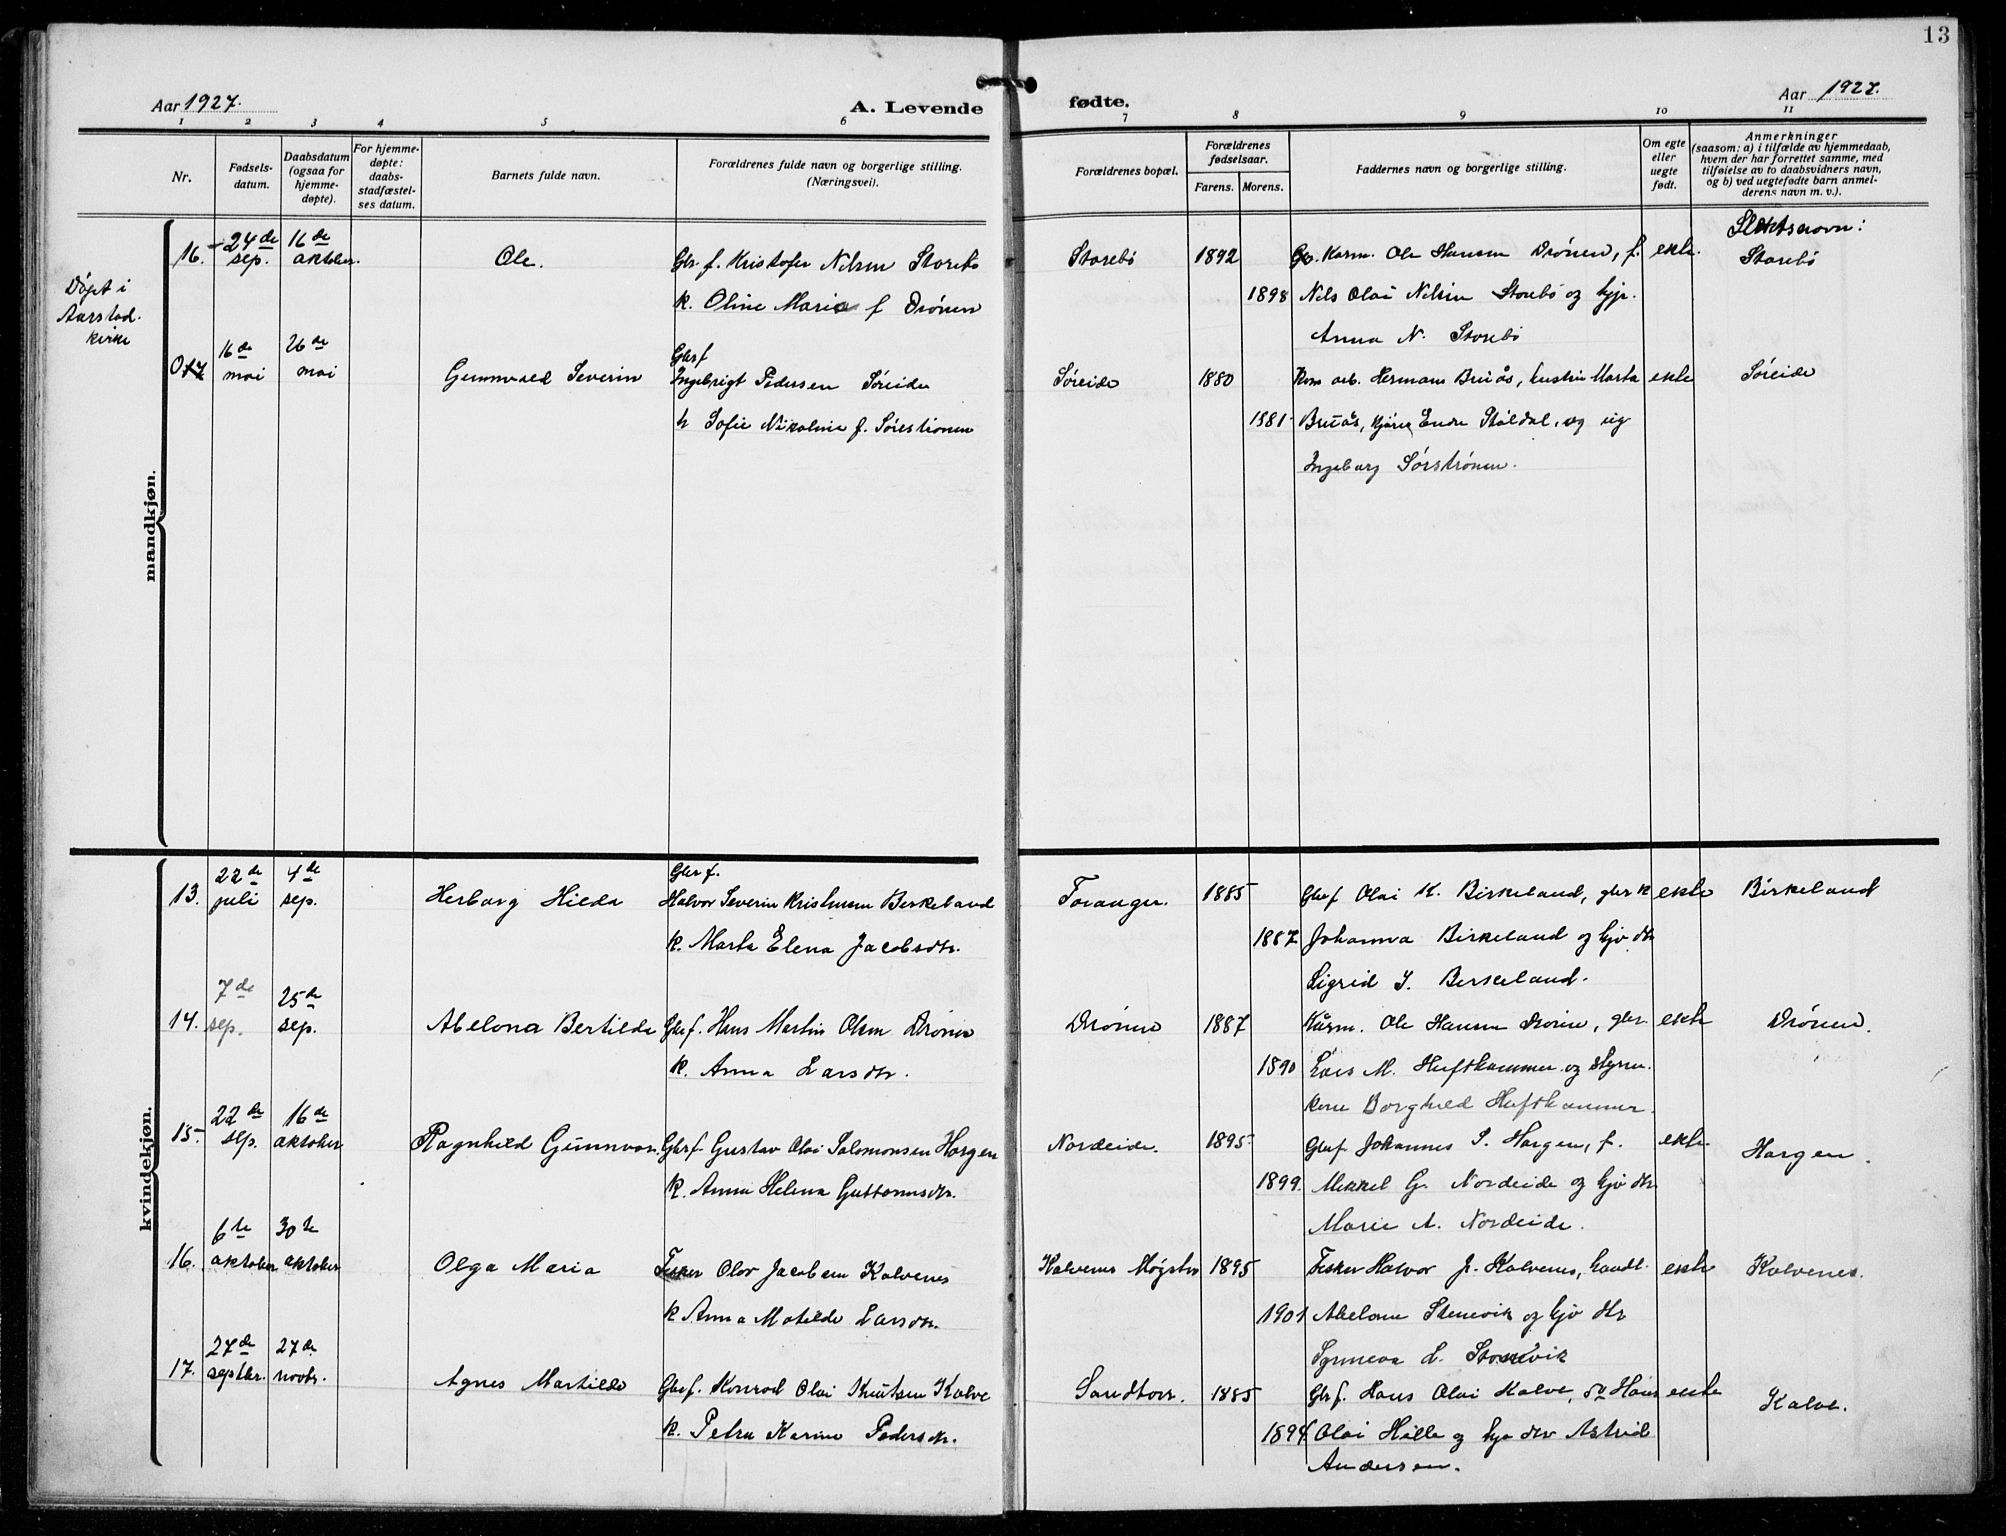 13
Aar 1927.
A. Levende
fødte.
Aar 1927.
1 2 3 4 5 6 7 8 9 10 11
Nr.
Fødsels-
datum.
Daabsdatum
(ogsaa for
hjemme-
døpte).
For hjemme-
døpte:
daabs-
stadfæstel-
ses datum.
Barnets fulde navn.
Forældrenes fulde navn og borgerlige stilling.
(Næringsvei).
Forældrenes bopæl.
Forældrenes
fødselsaar.
Farens. Morens.
Faddernes navn og borgerlige stilling.
Om egte
eller
uegte
født.
Anmerkninger
(saasom: a) i tilfælde av hjemmedaab,
hvem der har forrettet samme, med
tilføielse av to daabsvidners navn,
og b) ved uegtefødte barn anmel-
derens navn m. v.).
mandkjøn.
Slektsnavn:
16. 24de sep. 16de oktober. Ole. Gbr. f. Kristofer Nilsen Storebø Storebø 1892 Karm. Ole Hansen Drönen, f. ekte. Storebø
k. Oline Maria f Drönen 1898 Nils Olai Nilsen Storebø og
Anna N. Storebø
Döpt i
Aarstad
kirke
16de mai 26de mai Gunnvald Severin Gbr f
Ingebrigt Pedersen Søreide Søreide 1880 Hermann Bruås, hustru Marta ekte Søreide
h Sofie Nikoline f. Sørströnen 1881 Bruås, Endre Ståldal, og ug
Ingeborg Sørströnen.
kvindekjøn.
13. 22de juli 4de sep. Herborg Hilda Gbr f.
Halvor Severin Kristensen Birkeland 1885 Gbr f Olai K. Birkeland, gbr k ekte Birkeland
k. Marta Elena Jacobsdtr. 1887 Johanna Birkeland og tjv dtr
Sigrid J. Birkeland.
14. 7de sep. 25de sep. Abelona Bertilde Gbr f. Hans Martin Olsen Drönen Drönen 1887 Ole Hansen Drönen, gbr. ekte Drönen.
k. Anna Larsdtr. 1890 Lars M. Hufthammer og
Borghild Hufthammer.
15. 22de sep. 16de oktober Ragnhild Gunnvor. Gbr f. Gustav Olai Salomonsen Horgen Nordeide. 1895 Gbr f Johannes S. Horgen, f. ekte. Horgen.
k. Anna Helena Guttormsdtr. 1899. Mikkel G. Nordeide og tjv dtr
Marie A. Nordeide.
16. 6te oktober 30te oktober Olga Maria Fisker Olav Jacobsen Kalvenes Kalvenes Møgster 1895 Fisker Halvor J. Kalvenes, ekte Kalvenes.
k Anna Matilde Larsdtr. 1901 Abelone Stenevik og tjv dtr
Synneva L. Stenevik
17. 27de septbr. 27de novbr. Agnes Martilde Gbr f. Konrad Olai Knutsen Kalve 1885 Gbr f. Hans Olai Kalve, Hans ekte Kalve.
k. Petra Karine Pedersdtr. 1894 Olai Hille og tjv dtr Astrid
Andersen.